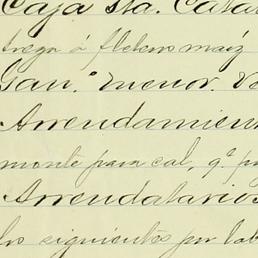 Caja Sta. Catar
trega á fletens maíz
Gan.º menor. Ve
Arrendamien
monte para cal, q.e p
Arrendatarios
los siguientes por lab